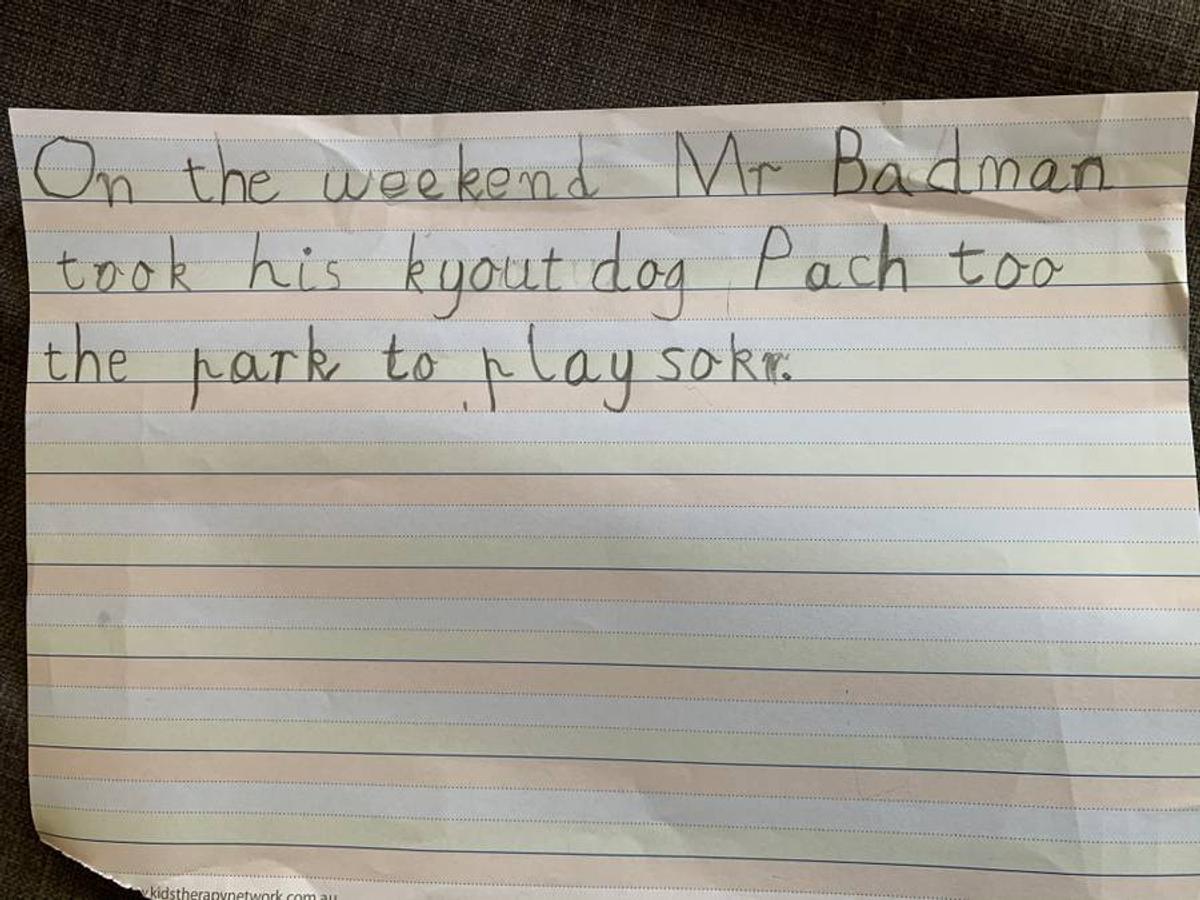 On the weekend Mr Badman
took his kyout dog Pach too
the park to play sokr.
kidstherapynetwork.com.au